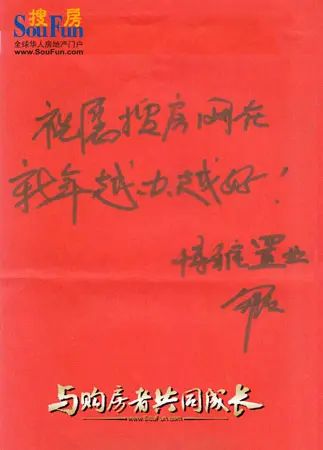 搜房
SouFun
全球华人房地产门户
www.SouFun.com
祝愿搜房网在
新年越办越好！
博雅置业
与购房者共同成长
www.soufun.com